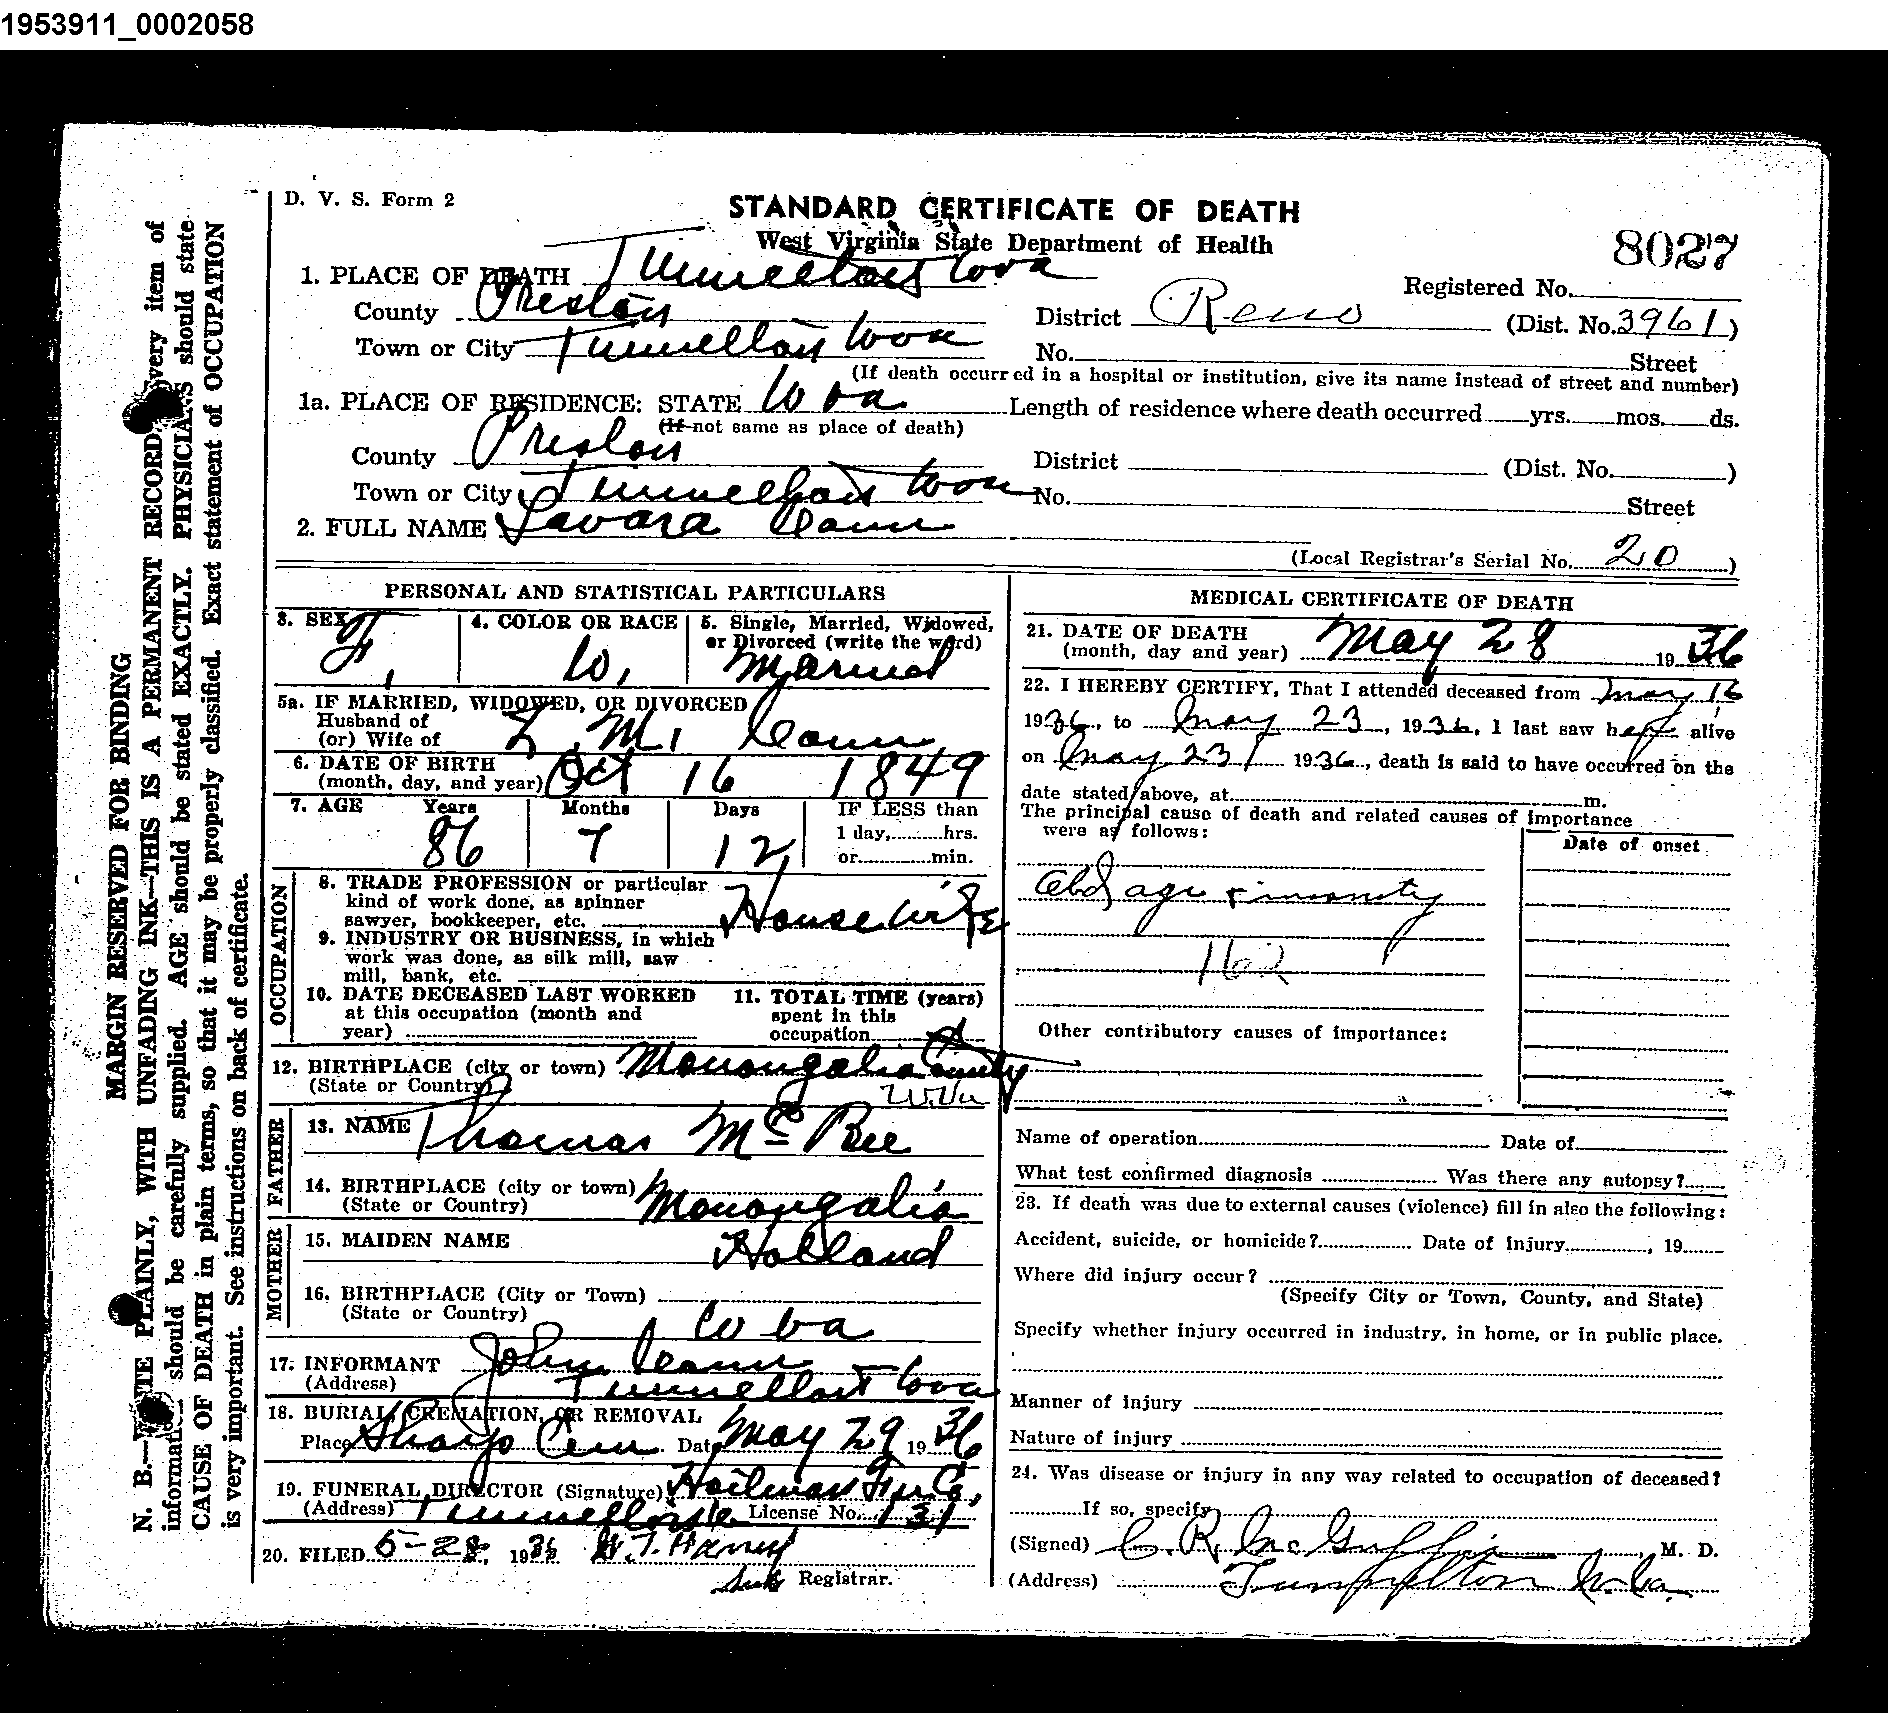 1953911_0002058
D. V. S. Form 2
STANDARD CERTIFICATE OF DEATH
West Virginia State Department of Health
8027
1. PLACE OF DEATH Tunnelton Wva
Registered No.
County Preston
District Reno (Dist. No. 3961)
Town or City Tunnelton Wva
No. Street
(If death occurred in a hospital or institution, give its name instead of street and number)
1a. PLACE OF RESIDENCE: STATE W va
Length of residence where death occurred yrs. mos. ds.
(If not same as place of death)
County Preston
District (Dist. No. )
Town or City Tunnelton Wva
No. Street
2. FULL NAME Savara
(Local Registrar's Serial No. 20 )
PERSONAL AND STATISTICAL PARTICULARS
3. SEX F,
4. COLOR OR RACE W,
5. Single, Married, Widowed, or Divorced (write the word) Married
5a. IF MARRIED, WIDOWED, OR DIVORCED
Husband of
(or) Wife of M,
6. DATE OF BIRTH
(month, day, and year) Oct 16 1849
7. AGE Years Months Days IF LESS than
86 7 12
1 day, hrs.
or min.
OCCUPATION
8. TRADE PROFESSION or particular
kind of work done, as spinner
sawyer, bookkeeper, etc. House Wife
9. INDUSTRY OR BUSINESS, in which
work was done, as silk mill, saw
mill, bank, etc.
10. DATE DECEASED LAST WORKED
at this occupation (month and
year)
11. TOTAL TIME (years)
spent in this
occupation
12. BIRTHPLACE (city or town) Monongalia County
(State or Country) W.Va
FATHER
13. NAME Thomas McBee
14. BIRTHPLACE (city or town) Monongalia
(State or Country)
MOTHER
15. MAIDEN NAME Holland
16. BIRTHPLACE (City or Town)
(State or Country) W va
17. INFORMANT John
(Address) Tunnelton Wva
18. BURIAL, CREMATION, OR REMOVAL
Place Sharps Cem. Date May 29 1936
19. FUNERAL DIRECTOR (Signature) Fur Co,
(Address) Tunnelton License No. 131
20. FILED 5-28, 1936 W. T. Haney
Sub Registrar.
MEDICAL CERTIFICATE OF DEATH
21. DATE OF DEATH
(month, day and year) May 28 1936
22. I HEREBY CERTIFY, That I attended deceased from May 16
1936, to May 23, 1936, I last saw her alive
on May 23 1936, death is said to have occurred on the
date stated above, at m.
The principal cause of death and related causes of importance
were as follows:
Date of onset
Old age + insanity
162
Other contributory causes of importance:
Name of operation Date of
What test confirmed diagnosis Was there any autopsy?
23. If death was due to external causes (violence) fill in also the following:
Accident, suicide, or homicide? Date of injury , 19
Where did injury occur?
(Specify City or Town, County, and State)
Specify whether injury occurred in industry, in home, or in public place.
Manner of injury
Nature of injury
24. Was disease or injury in any way related to occupation of deceased?
If so, specify
(Signed) C. R. McGuffin, M. D.
(Address) Tunnelton W. Va
MARGIN RESERVED FOR BINDING
N. B.—WRITE PLAINLY, WITH UNFADING INK—THIS IS A PERMANENT RECORD. Every item of
information should be carefully supplied. AGE should be stated EXACTLY. PHYSICIANS should state
CAUSE OF DEATH in plain terms, so that it may be properly classified. Exact statement of OCCUPATION
is very important. See instructions on back of certificate.